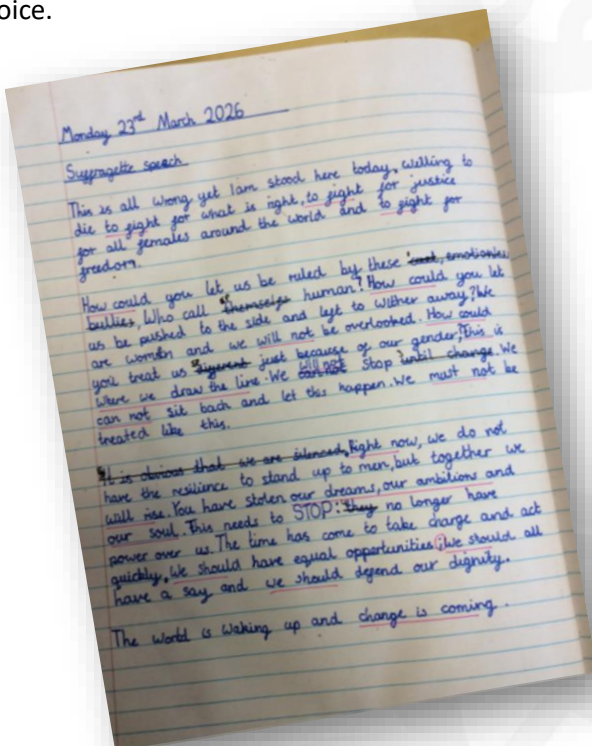 oice.
Monday 23rd March 2026
Suffragette speech
This is all wrong yet I am stood here today, welling to
die to fight for what is right, to fight for justice
for all females around the world and to fight for
freedom.
How could you let us be ruled by these emotionless
bullies, Who call themselfs human? How could you let
us be pushed to the side and left to wither away? We
are women and we will not be overlooked. How could
you treat us different just because of our gender? This is
where we draw the line. We will not stop until change. We
can not sit back and let this happen. We must not be
treated like this.
It is obvious that we are silenced, Right now, we do not
have the resilience to stand up to men, but together we
will rise. You have stolen our dreams, our ambitions and
our soul. This needs to STOP: they no longer have
power over us. The time has come to take charge and act
quickly. We should have equal opportunities; We should all
have a say and we should defend our dignity.
The world is waking up and change is coming.